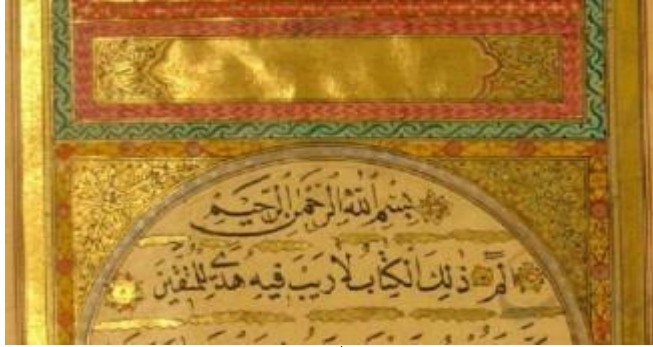 بِسْمِ اللهِ الرَّحْمٰنِ الرَّحِيمِ
الٓمٓ ذٰلِكَ الْكِتَابُ لَا رَيْبَ فِيهِ هُدًى لِلْمُتَّقِينَ